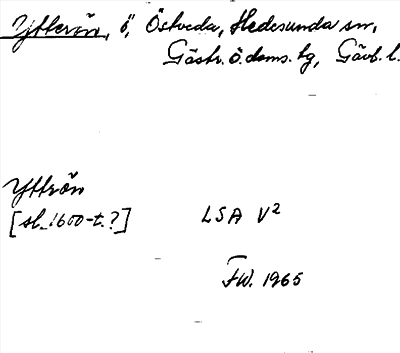 Ytterön, ö, Östveda, Hedesunda sn,
Gästr. ö. doms. hg, Gävl. l.
Yttrön
[sl. 1600-t.?] LSA V²
FW. 1965